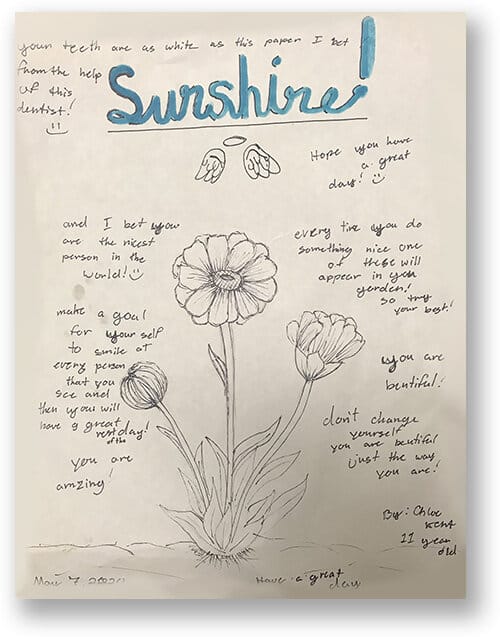 your teeth are as white as this paper I bet
from the help
of this
dentist!
Sunshine!
Hope you have
a great
day!
and I bet you
are the nicest
person in the
world!
every time you do
something nice one
of these will
appear in you
gerden!
so try
your best!
make a goal
for your self
to smile at
every person
that you
see and
then you will
have a great
rest of the day!
you are
amzing!
you are
beutiful!
don't change
yourself
you are beutiful
just the way
you are!
By: Chloe
Kent
11 year
old
May 7 2020
Have a great
day